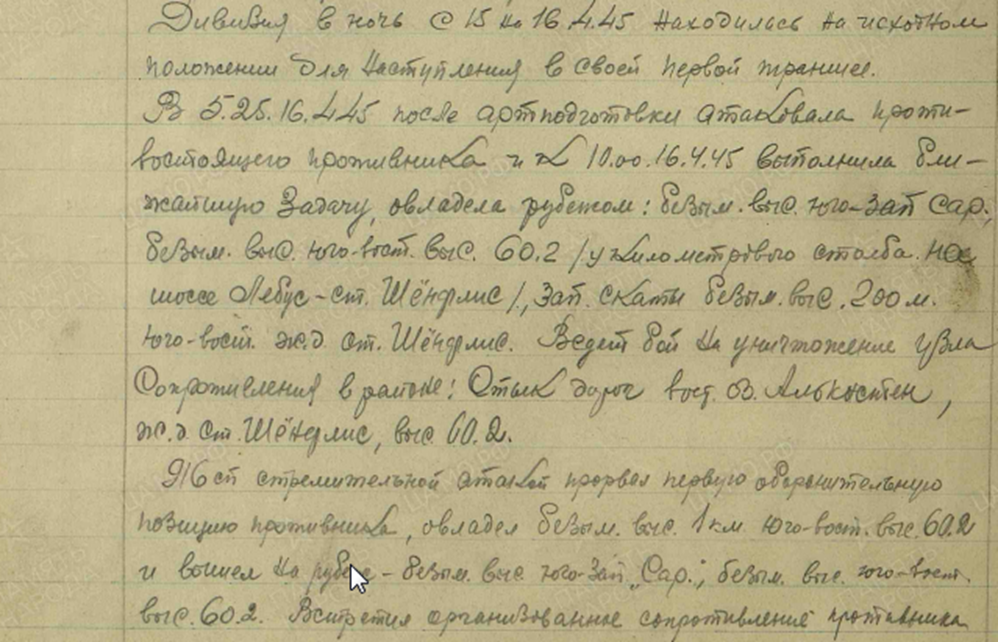 Дивизия в ночь с 15 на 16.4.45 находилась на исходном
положении для наступления в своей первой траншее.
В 5.25.16.4.45 после артподготовки атаковала проти-
востоящего противника и к 10.00.16.4.45 выполнила бли-
жайшую задачу, овладела рубежом: безым. выс. юго-зап Сар.,
безым. выс. юго-вост. выс. 60.2 /у километрового столба на
шоссе Лебус-ст. Шёнфлис/, зап. скаты безым. выс. 200 м.
юго-вост. ж.д. ст. Шёнфлис. Ведет бой на уничтожение узла
сопротивления в районе: Стык дорог вост. оз. Алькистен,
ж.д. ст. Шёнфлис, выс 60.2.
916 сп стремительной атакой прорвал первую оборонительную
позицию противника, овладел безым. выс. 1 км юго-вост. выс. 60.2
и вышел на рубеж - безым. выс юго-зап. "Сар.", безым. выс. юго-вост.
выс. 60.2. Встретив организованное сопротивление противника